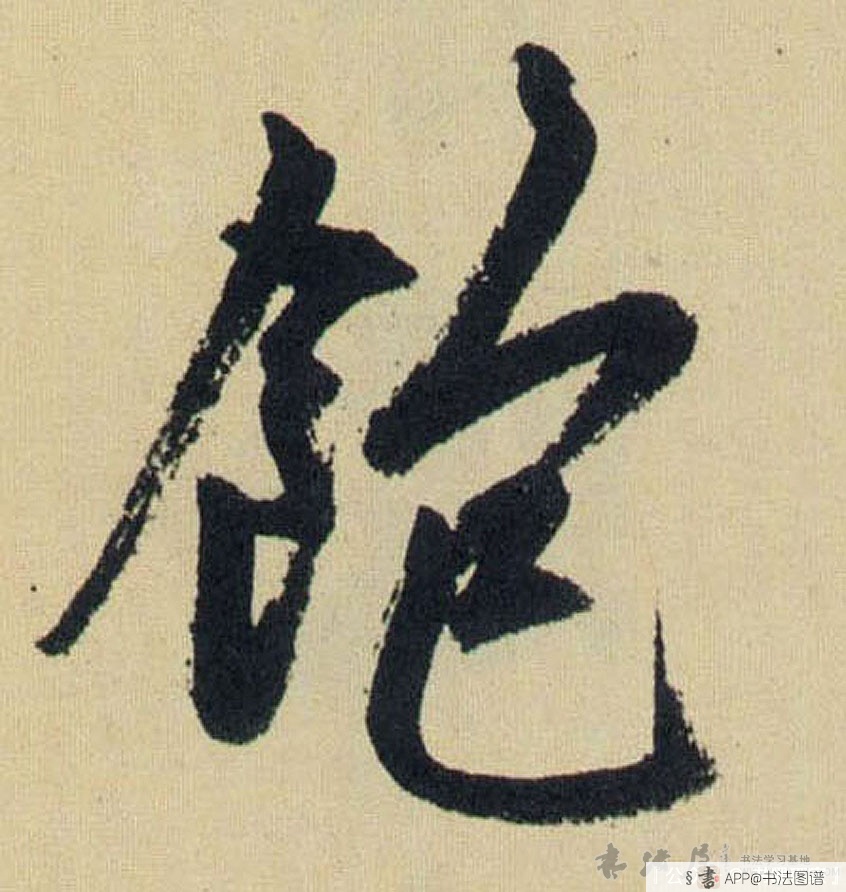 飽
书法学习基地
§書 APP@书法图谱